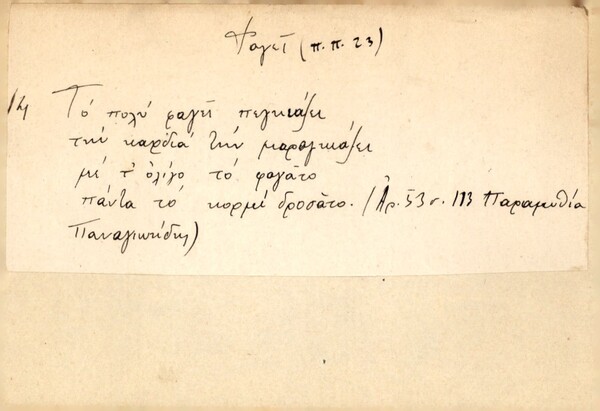 Φαγεῖ (π.π. 23)
14 Τό πολύ φαγεῖ πεγκιάζει
τήν καρδιά τήν μαραγκιάζει
μέ τ' ὀλίγο τό φαγᾶτο
πάντα τό κορμί δροσᾶτο. (Ἀρ. 53 σ. 113 Παραμυθία
Παναγιωτίδης)